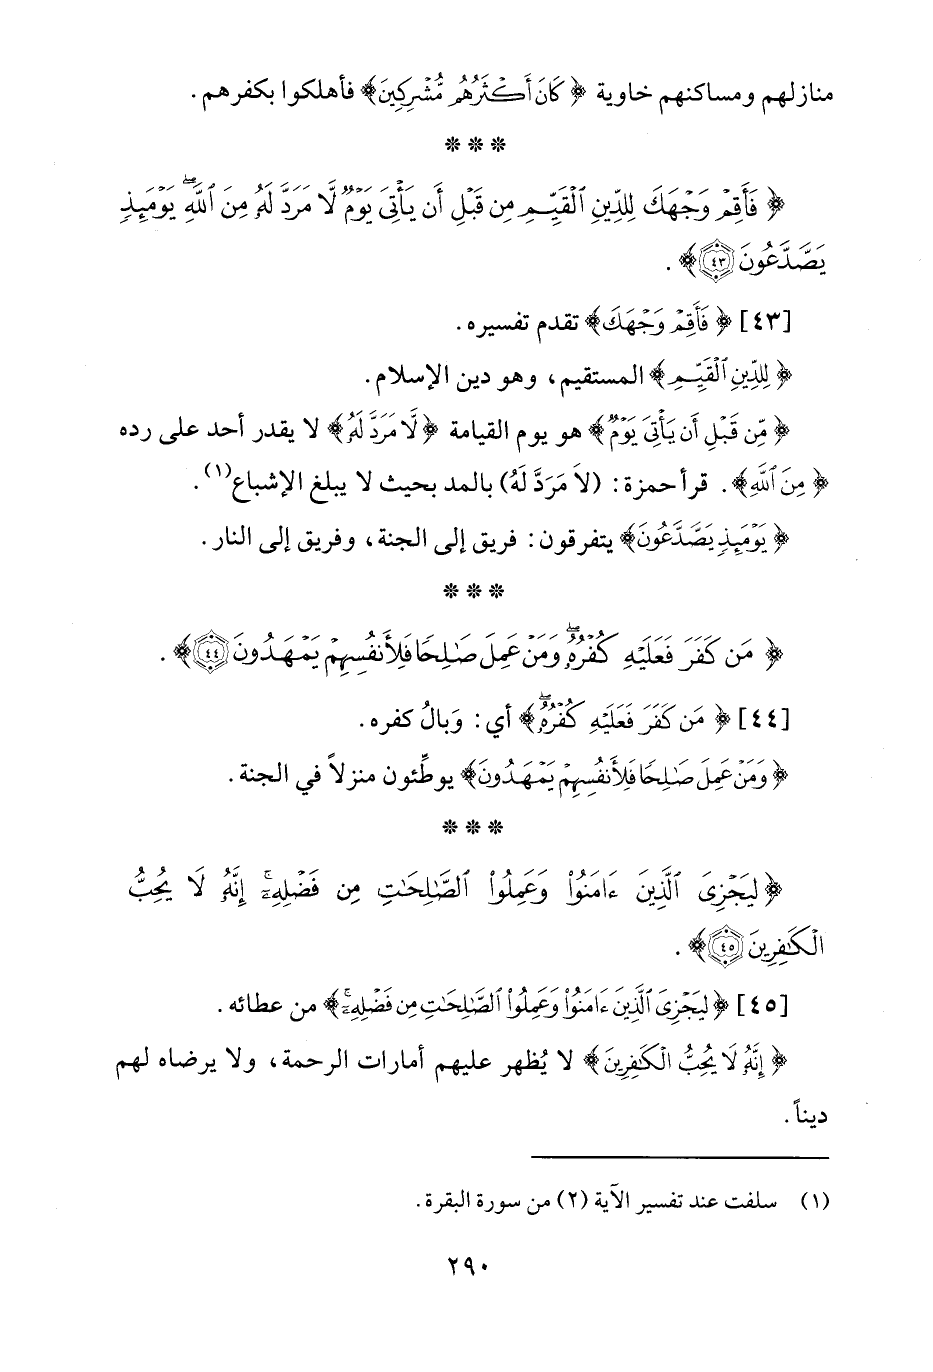 منازلهم ومساكنهم خاوية ﴿ كَانَ أَكْثَرُهُم مُّشْرِكِينَ﴾ فأهلكوا بكفرهم .
* * *
﴿ فَأَقِمْ وَجْهَكَ لِلدِّينِ ٱلْقَيِّمِ مِن قَبْلِ أَن يَأْتِىَ يَوْمٌ لَّا مَرَدَّ لَهُۥ مِنَ ٱللَّهِ ۖ يَوْمَئِذٍ
يَصَّدَّعُونَ ٤٣﴾ .
[٤٣] ﴿ فَأَقِمْ وَجْهَكَ﴾ تقدم تفسيره .
﴿ لِلدِّينِ ٱلْقَيِّمِ﴾ المستقيم، وهو دين الإسلام .
﴿ مِّن قَبْلِ أَن يَأْتِىَ يَوْمٌ﴾ هو يوم القيامة ﴿ لَّا مَرَدَّ لَهُۥ﴾ لا يقدر أحد على رده
﴿ مِنَ ٱللَّهِ﴾ . قرأ حمزة : (لاَ مَرَدَّ لَهُ) بالمد بحيث لا يبلغ الإشباع(١) .
﴿ يَوْمَئِذٍ يَصَّدَّعُونَ﴾ يتفرقون : فريق إلى الجنة، وفريق إلى النار .
* * *
﴿ مَن كَفَرَ فَعَلَيْهِ كُفْرُهُۥ ۖ وَمَنْ عَمِلَ صَٰلِحًا فَلِأَنفُسِهِمْ يَمْهَدُونَ ٤٤﴾ .
[٤٤] ﴿ مَن كَفَرَ فَعَلَيْهِ كُفْرُهُۥ ۖ﴾ أي : وَبالُ كفره .
﴿ وَمَنْ عَمِلَ صَٰلِحًا فَلِأَنفُسِهِمْ يَمْهَدُونَ﴾ يوطِّئون منزلاً في الجنة .
* * *
﴿ لِيَجْزِىَ ٱلَّذِينَ ءَامَنُوا۟ وَعَمِلُوا۟ ٱلصَّٰلِحَٰتِ مِن فَضْلِهِۦٓ ۚ إِنَّهُۥ لَا يُحِبُّ
ٱلْكَٰفِرِينَ ٤٥﴾ .
[٤٥] ﴿ لِيَجْزِىَ ٱلَّذِينَ ءَامَنُوا۟ وَعَمِلُوا۟ ٱلصَّٰلِحَٰتِ مِن فَضْلِهِۦٓ ۚ﴾ من عطائه .
﴿ إِنَّهُۥ لَا يُحِبُّ ٱلْكَٰفِرِينَ﴾ لا يُظهر عليهم أمارات الرحمة، ولا يرضاه لهم
ديناً .
(١) سلفت عند تفسير الآية (٢) من سورة البقرة .
٢٩٠